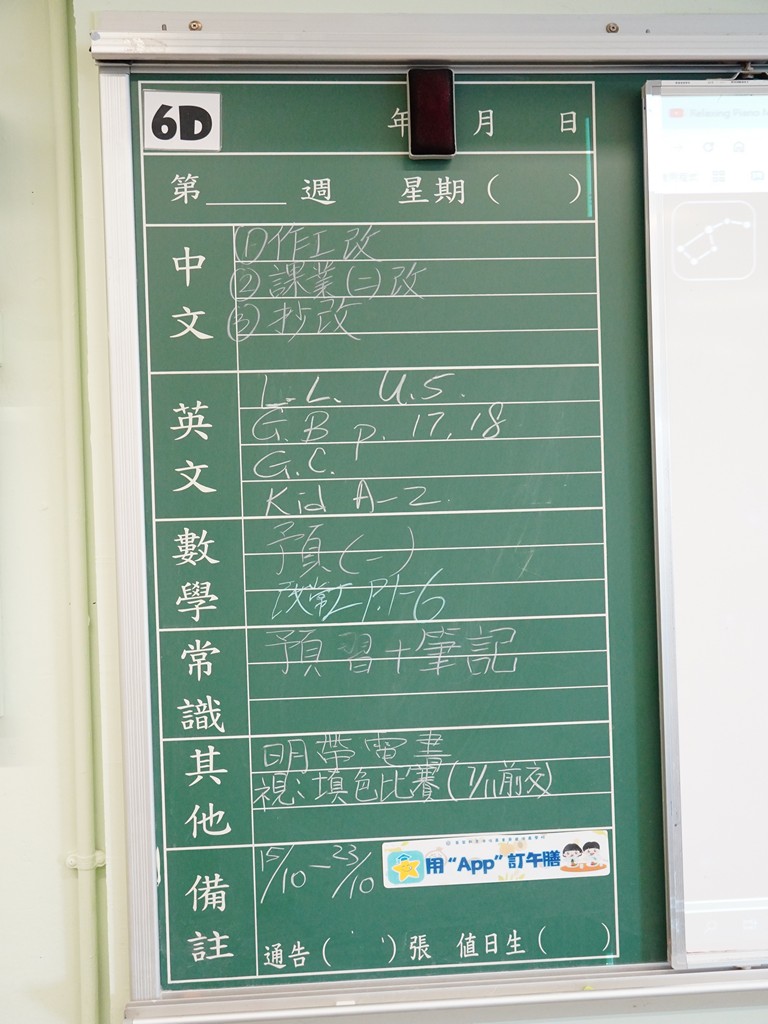 6D
年 月 日
第 週 星期( )
中文
①作工改
②課業(二)改
③抄改
英文
L.L. U.5.
G.B p. 17, 18
G.C.
Kid A-Z
數學
預(一)
改常工P.1-6
常識
預習+筆記
其他
明帶電畫
視:填色比賽(7/11前交)
備註
15/10-23/10
用“App”訂午膳
通告( )張 值日生( )
Relaxing Piano